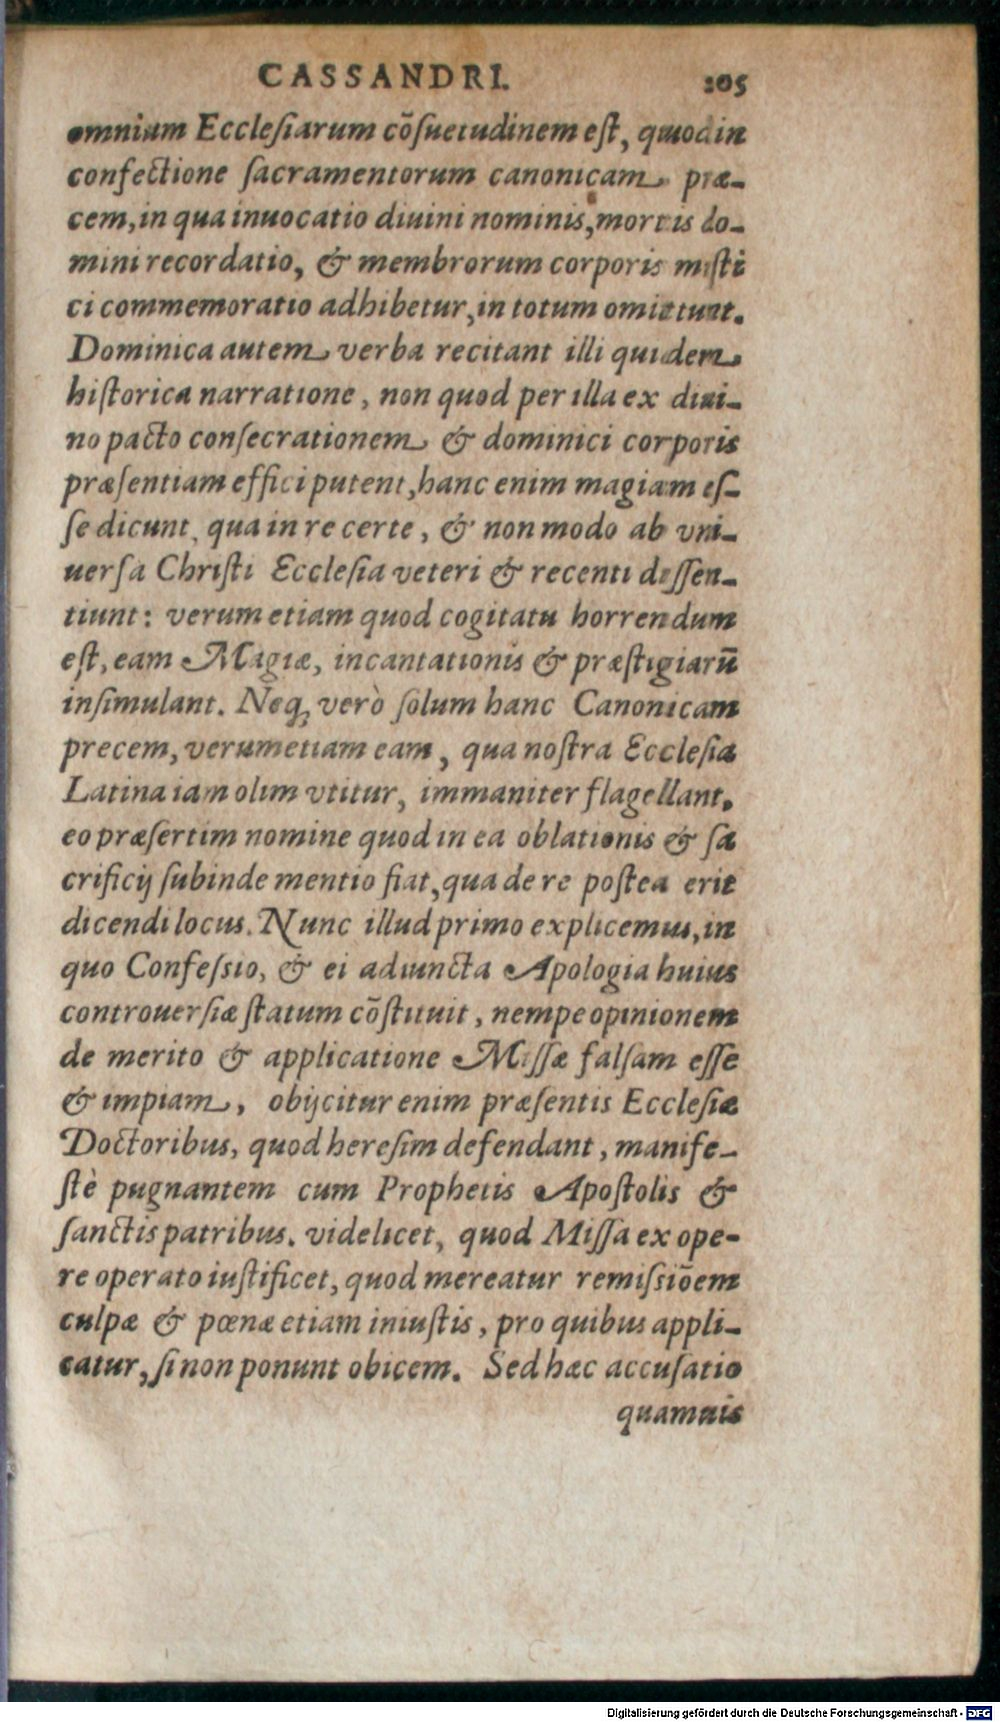 CASSANDRI. 205
omnium Ecclesiarum cõsuetudinem est, quod in
confectione sacramentorum canonicam præ-
cem, in qua inuocatio diuini nominis, mortis do-
mini recordatio, & membrorum corporis misti
ci commemoratio adhibetur, in totum omittunt.
Dominica autem verba recitant illi quidem
historica narratione, non quod per illa ex diui-
no pacto consecrationem & dominici corporis
præsentiam effici putent, hanc enim magiam es-
se dicunt, qua in re certe, & non modo ab vni-
uersa Christi Ecclesia veteri & recenti dissen-
tiunt: verum etiam quod cogitatu horrendum
est, eam Magiæ, incantationis & præstigiarũ
insimulant. Neq; verò solum hanc Canonicam
precem, verumetiam eam, qua nostra Ecclesia
Latina iam olim vtitur, immaniter flagellant.
eo præsertim nomine quod in ea oblationis & sa
crificij subinde mentio fiat, qua de re postea erit
dicendi locus. Nunc illud primo explicemus, in
quo Confessio, & ei adiuncta Apologia huius
controuersiæ statum cõstituit, nempe opinionem
de merito & applicatione Missæ falsam esse
& impiam, obijcitur enim præsentis Ecclesiæ
Doctoribus, quod heresim defendant, manife-
stè pugnantem cum Prophetis Apostolis &
sanctis patribus. videlicet, quod Missa ex ope-
re operato iustificet, quod mereatur remissiõem
culpæ & pœnæ etiam iniustis, pro quibus appli-
catur, si non ponunt obicem. Sed hæc accusatio
quamuis
Digitalisierung gefördert durch die Deutsche Forschungsgemeinschaft - DFG